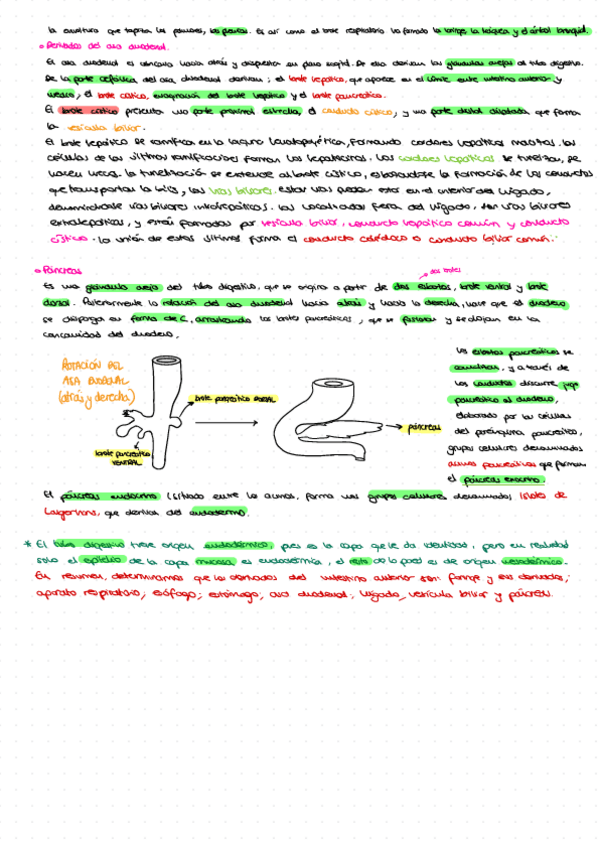 la envoltura que tapiza los pulmones, las pleuras. Es así como el brote respiratorio ha formado la laringe, la tráquea y el árbol bronquial.
Derivados del asa duodenal.
El asa duodenal es cóncava hacia atrás y dispuesta en plano sagital. De ella derivan las glándulas anejas al tubo digestivo.
De la parte cefálica del asa duodenal derivan; el brote hepático, que aparece en el límite entre intestino anterior y
medio, el brote cístico, evaginación del brote hepático y el brote pancreático.
El brote cístico presenta una parte proximal estrecha, el conducto cístico, y una parte distal dilatada que forma
la vesícula biliar.
El brote hepático se ramifica en la laguna hematopoyética, formando cordones hepáticos macizos. Las
células de las últimas ramificaciones forman los hepatocitos. Los cordones hepáticos se tunelizan, se
hacen huecos. La tunelización se extiende al brote cístico, elaborándose la formación de los conductos
que transportan la bilis, las vías biliares. Estas vías pueden estar en el interior del hígado,
denominándose vías biliares intrahepáticas. Las localizadas fuera del hígado, son vías biliares
extrahepáticas, y están formadas por vesícula biliar, conducto hepático común y conducto
cístico. La unión de estos últimos forma el conducto colédoco o conducto biliar común.
dos brotes
Páncreas
Es una glándula aneja del tubo digestivo, que se origina a partir de dos esbozos, brote ventral y brote
dorsal. Posteriormente la rotación del asa duodenal hacia atrás y hacia la derecha, hace que el duodeno
se disponga en forma de C, arrastrando los brotes pancreáticos, que se fusionan y se alojan en la
concavidad del duodeno.
ROTACIÓN DEL
ASA DUODENAL
(atrás y derecha)
brote pancreático DORSAL
brote pancreático
VENTRAL
páncreas
Los esbozos pancreáticos se
, y a través de
los conductos discurre jugo
pancreático al duodeno,
elaborado por las células
del parénquima pancreático,
grupos celulares denominados
acinos pancreáticos que forman
el páncreas exocrino.
El páncreas endocrino (situado entre los acinos, forma unos grupos celulares denominados islotes de
Langerhans, que derivan del endodermo.
* El tubo digestivo tiene origen endodérmico, pues es la capa que le da identidad, pero en realidad
solo el epitelio de la capa mucosa es endodérmica, el resto de la pared es de origen mesodérmico.
En resumen, determinamos que los derivados del intestino anterior son: faringe y sus derivados;
aparato respiratorio; esófago; estómago; asa duodenal; hígado, vesícula biliar y páncreas.